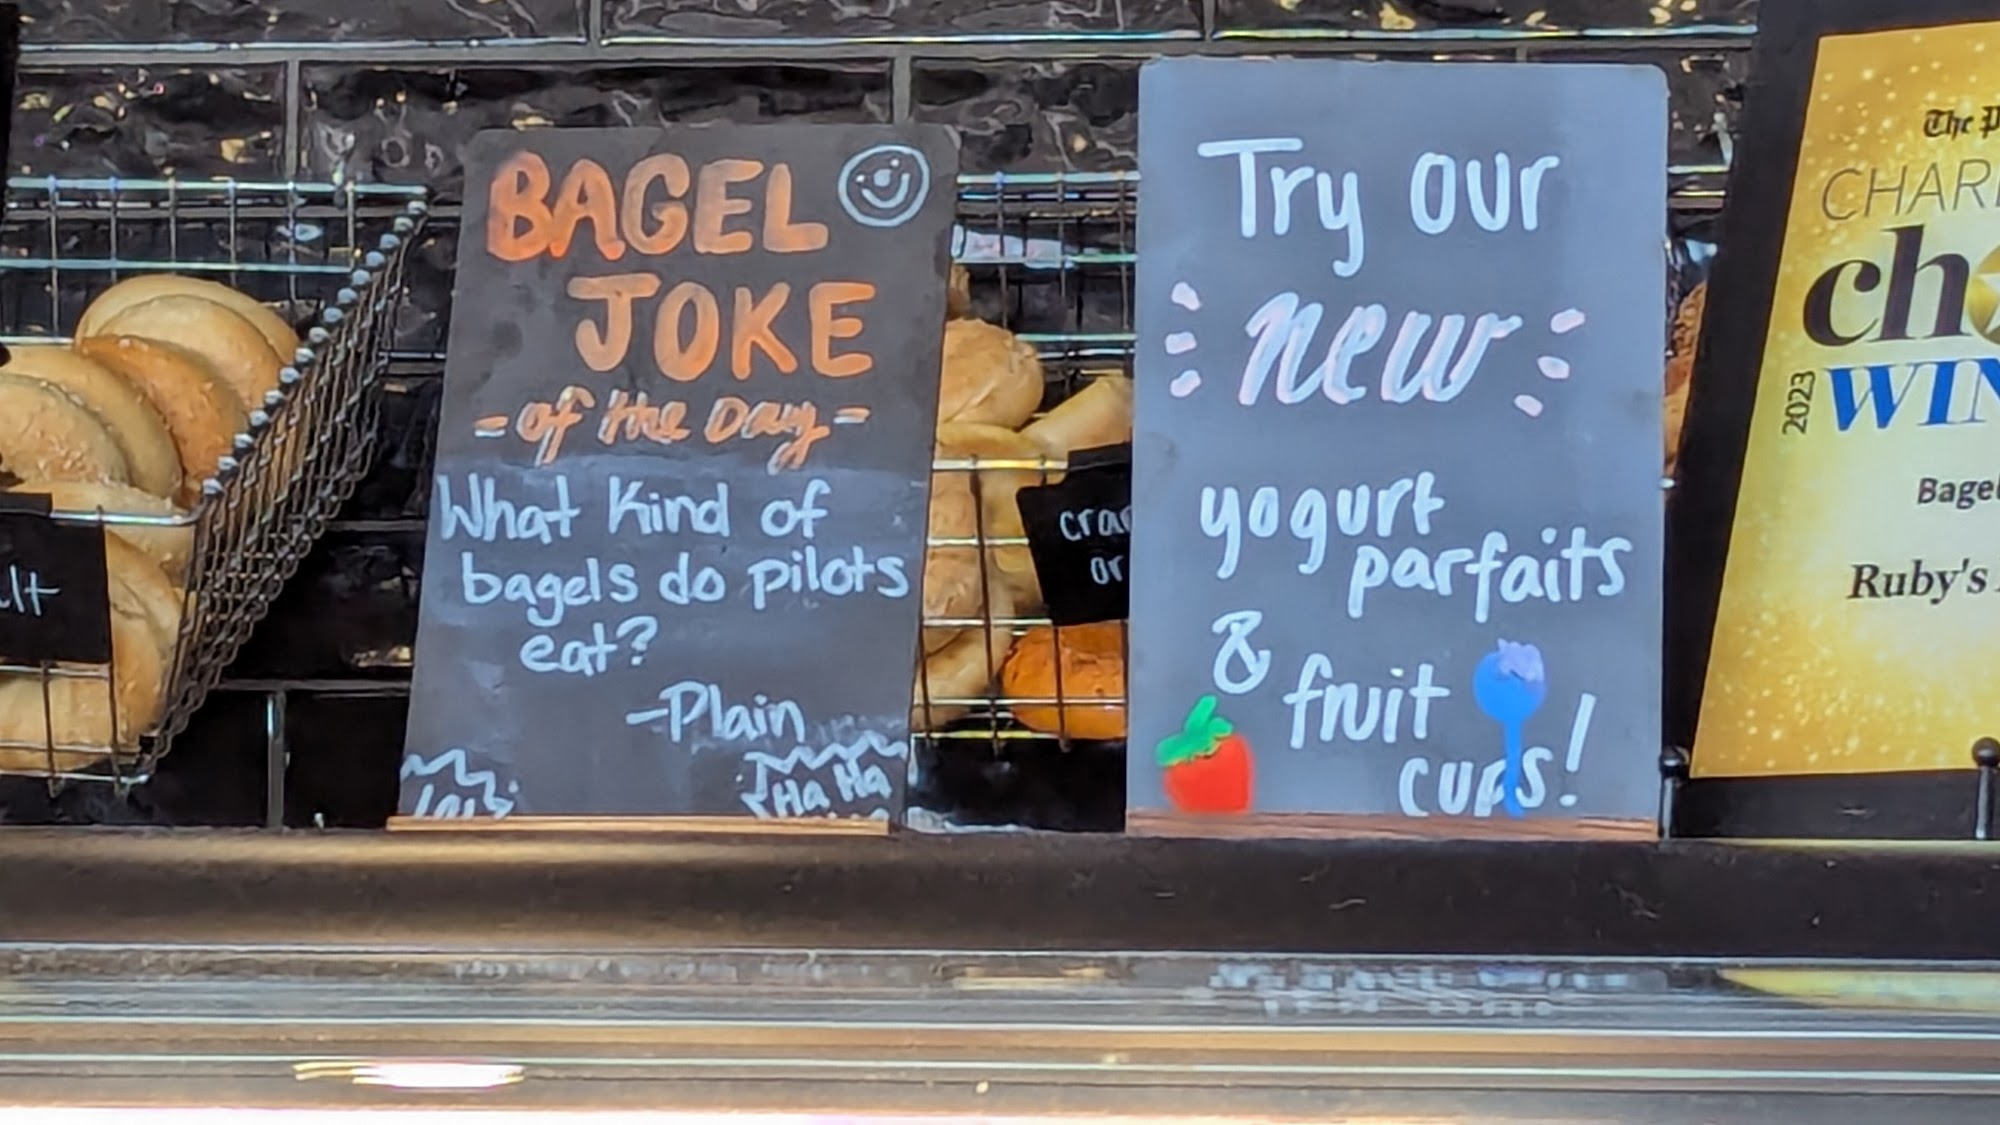 BAGEL
JOKE
-of the Day-
What kind of
bagels do pilots
eat?
-Plain
Ha Ha
Try our
new
yogurt
parfaits
& fruit
cups!
lt
cra
or
The P
CHAR
ch
2023
WIN
Bagel
Ruby's